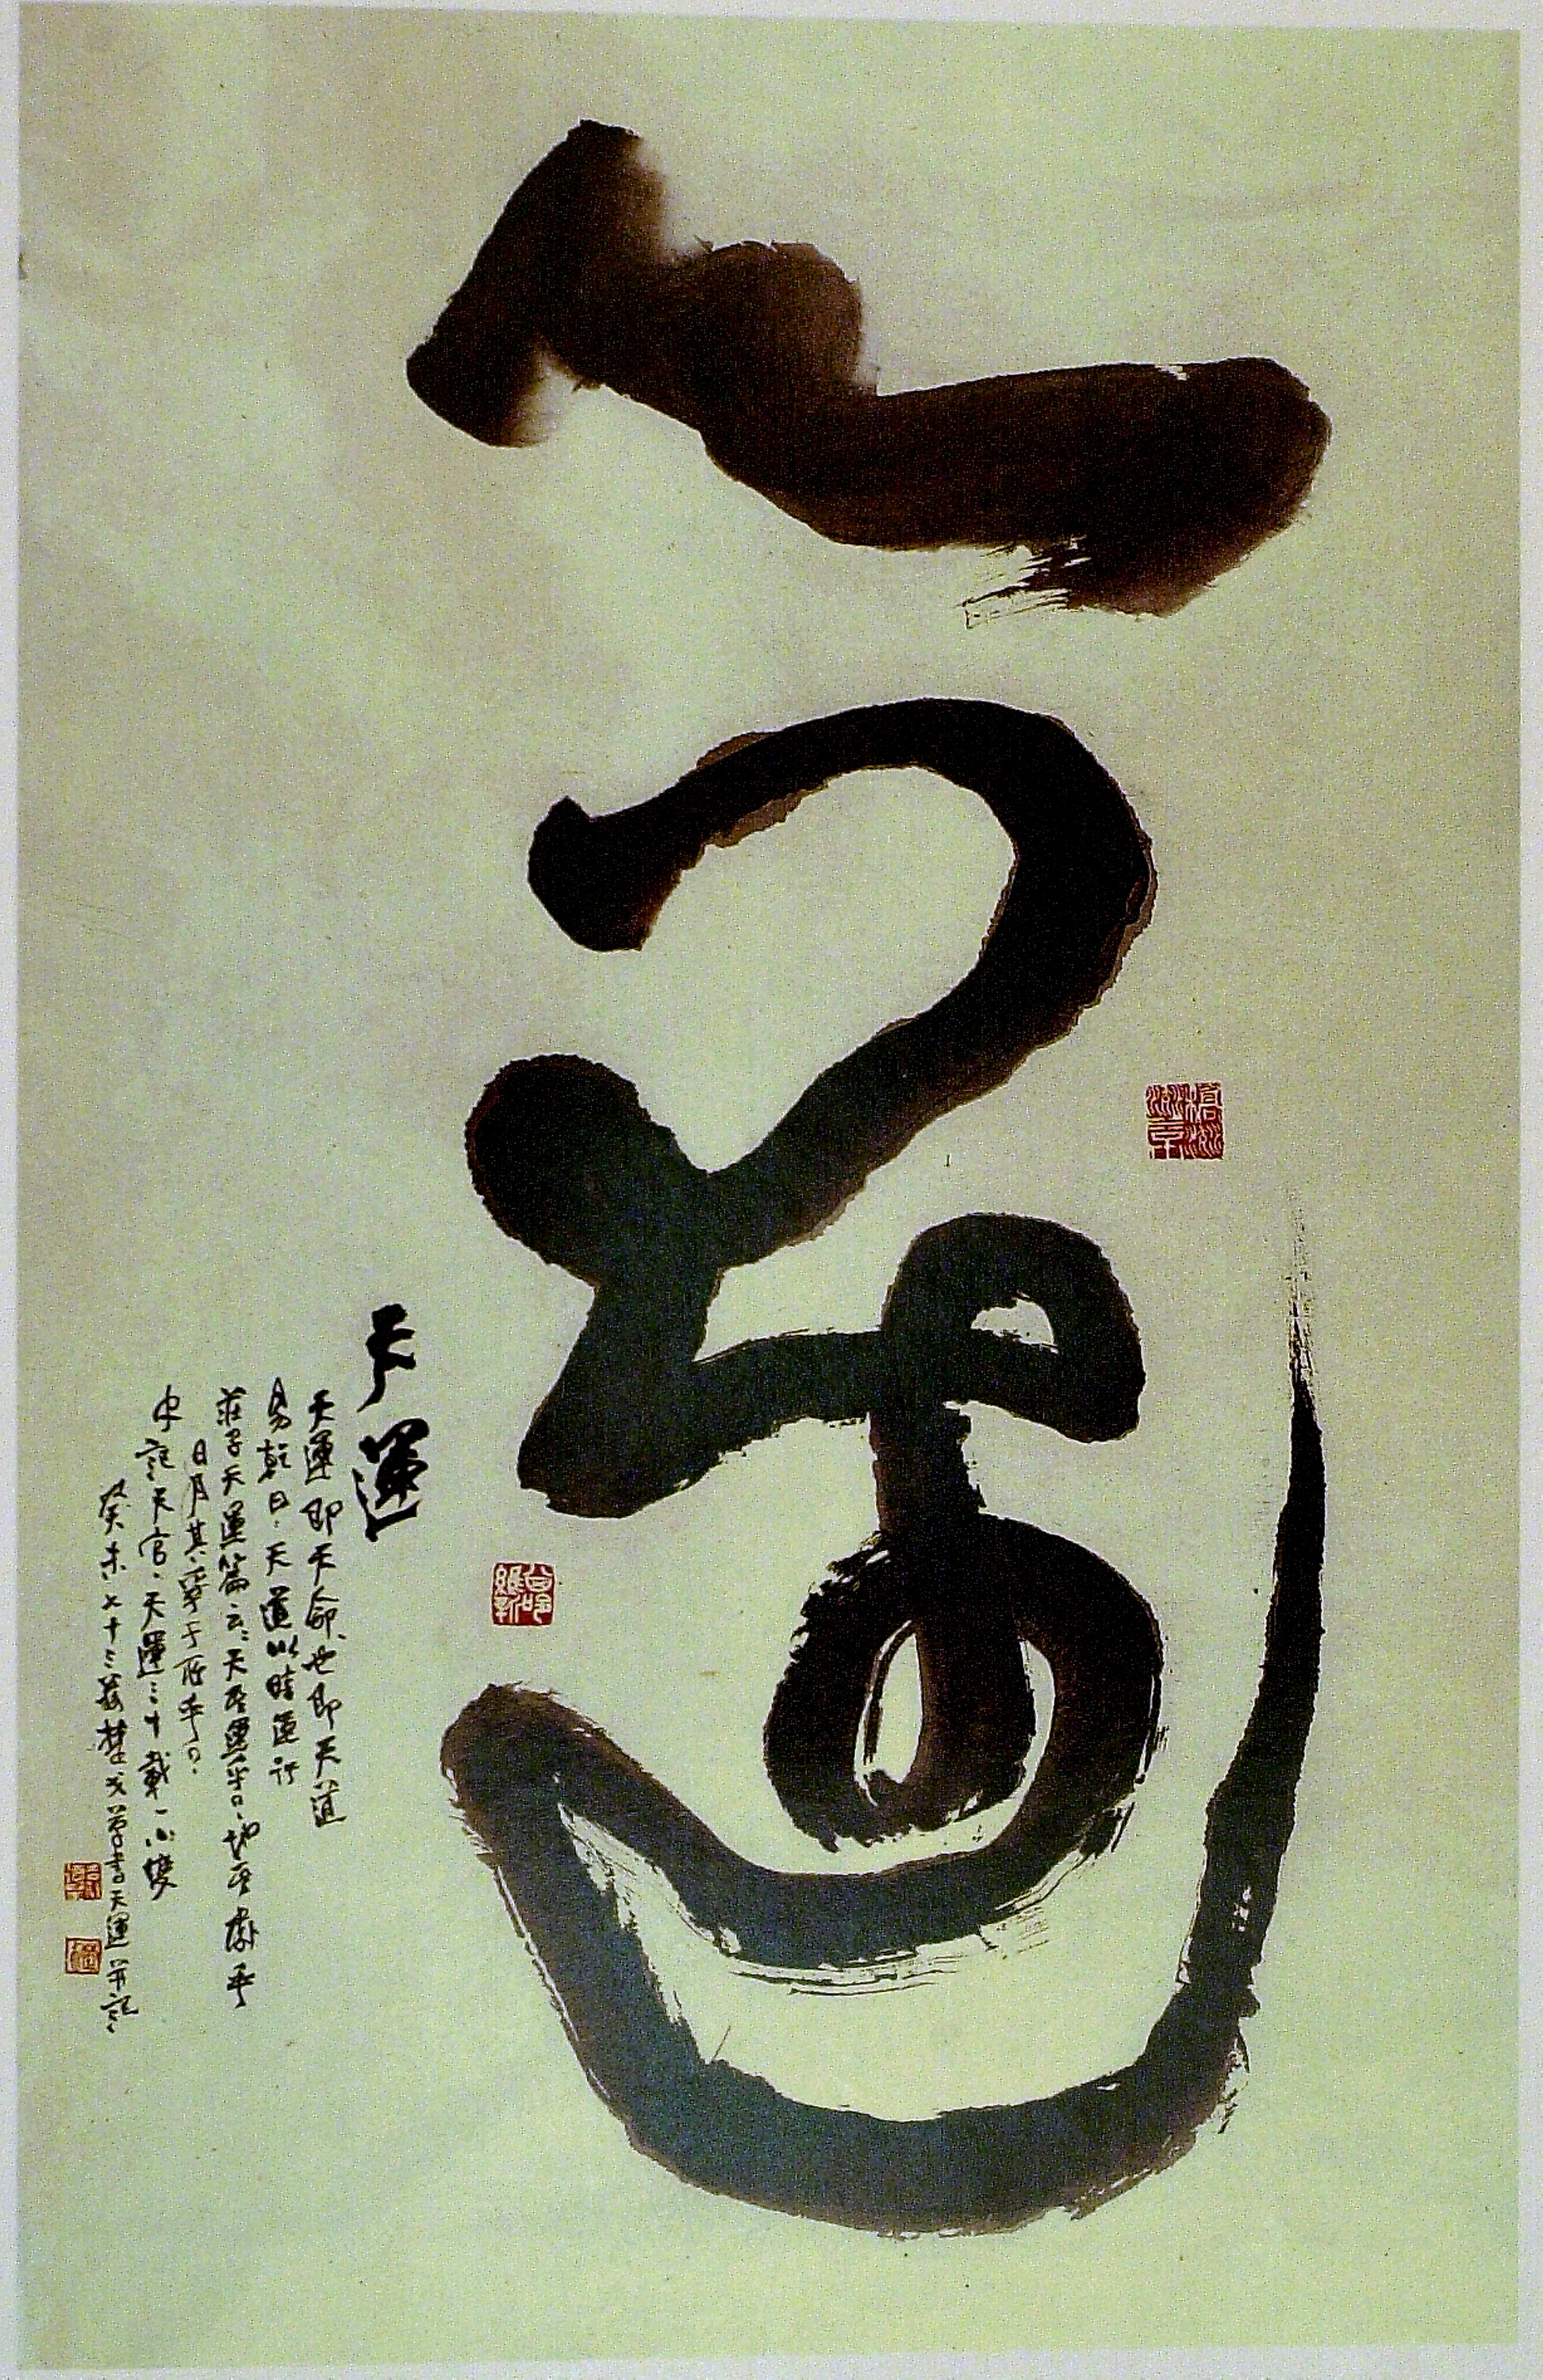 天運
天運
天運即天命也即天道
易乾曰天道以時運行
莊子天運篇云天其運乎地其處乎
日月其爭于所乎
史記天官天運三十載一小變
癸未七十三翁楚戈草書天運并記